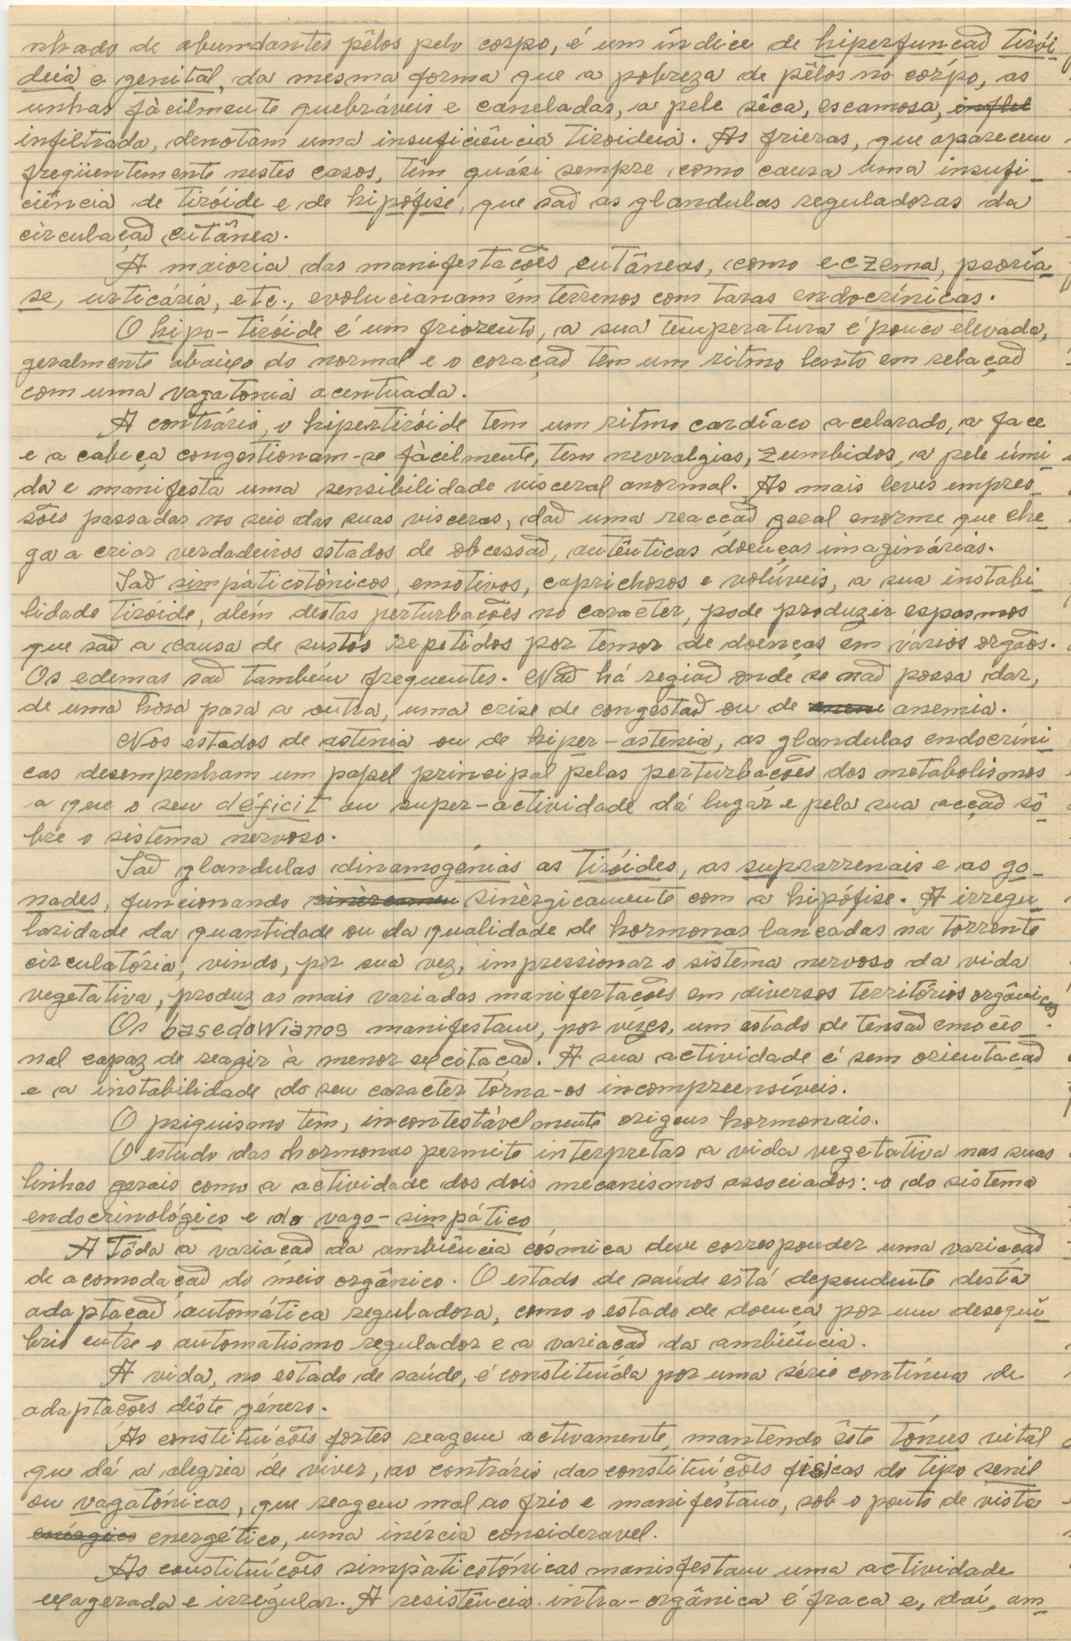 nhado de abundantes pêlos pelo corpo, é um índice de hiperfunção tirói-
deia e genital, da mesma forma que a pobreza de pêlos no corpo, as
unhas fàcilmente quebráveis e caneladas, a pele sêca, escamosa,
infiltrada, denotam uma insuficiência tiroideia. As frieiras, que aparecem
freqüentemente nestes casos, têm quási sempre como causa uma insufi-
ciência de tiróide e de hipófise, que são as glandulas reguladoras da
circulação cutânea.
A maioria das manifestações cutâneas, como eczema, psoría-
se, urticária, etc., evolucionam em terrenos com taras endocrínicas.
O hipo-tiróide é um friorento, a sua temperatura é pouco elevada,
geralmente abaixo do normal e o coração tem um ritmo lento em relação
com uma vagatonia acentuada.
A contrário, o hipertiróide tem um ritmo cardíaco acelarado, a face
e a cabeça congestionam-se fàcilmente, tem nevralgias, zumbidos, a pele úmi-
da e manifesta uma sensibilidade visceral anormal. As mais leves impres-
sões passadas no seio das suas visceras, dão uma reacção geral enorme que che-
ga a criar verdadeiros estados de obcessão, autênticas doenças imaginárias.
São simpàticotónicos, emotivos, caprichosos e volúveis, a sua instabi-
lidade tiróide, além destas perturbações no caracter, pode produzir espasmos
que são a causa de sustos repetidos por temor de doenças em vários orgãos.
Os edemas são também frequentes. Não há região onde se não possa dar,
de uma hora para a outra, uma crise de congestão ou de anemia.
Nos estados de astenia ou de hiper-astenia, as glandulas endocríni-
cas desempenham um papel principal pelas perturbações dos metabolismos
a que o seu déficit ou super-actividade dá lugar e pela sua acção sô-
bre o sistema nervoso.
São glandulas dinamogénias as tiróides, as suprarrenais e as go-
nades, funcionando sinèrgicamente com a hipófise. A irregu-
laridade da quantidade ou da qualidade de hormonas lançadas na torrente
circulatória, vindo, por sua vez, impressionar o sistema nervoso da vida
vegetativa, produz as mais variadas manifertações em diversos territórios orgânicos
Os basedowianos manifestam, por vêzes, um estado de tensão emocio-
nal capaz de reagir à menor excitação. A sua actividade é sem orientação
e a instabilidade do seu caracter torna-os incompreensíveis.
O psiquismo tem, incontestàvelmente origens hormonais.
O estudo das hormonas permite interpretar a vida vegetativa nas suas
linhas gerais como a actividade dos dois mecanismos associados: o do sistema
endocrinológico e do vago-simpático
A Tôda a variação da ambiência cósmica deve corresponder uma variação
de acomodação do meio orgânico. O estado de saúde está dependente desta
adaptação automática reguladora, como o estado de doença por um desequi-
brio entre o automatismo regulador e a variação da ambiência.
A vida, no estado de saúde, é constituída por uma série contínua de
adaptações dêste género.
As constituïções fortes reagem activamente, mantendo êste tónus vital
que dá a alegria de viver, ao contrário das constituïções físicas do tipo senil
ou vagatónicas, que reagem mal ao frio e manifestam, sob o ponto de vista
energético, uma inércia consideravel.
As constituïções simpàticotónicas manifestam uma actividade
exagerada e irrégular. A resistência intra-orgânica é fraca e, daí, am-